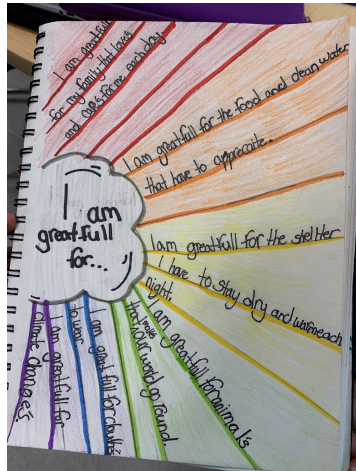 I am
greatfull
for...
I am greatfull
for my family that loves
and cares for me each day
I am greatfull for the food and clean water
that have to appreciate...
I am greatfull for the shelter
I have to stay dry and warm each
night.
I am great full for animal's
that make
our world go round
I am great full for clouths
to wear
I am great full for
climate changes